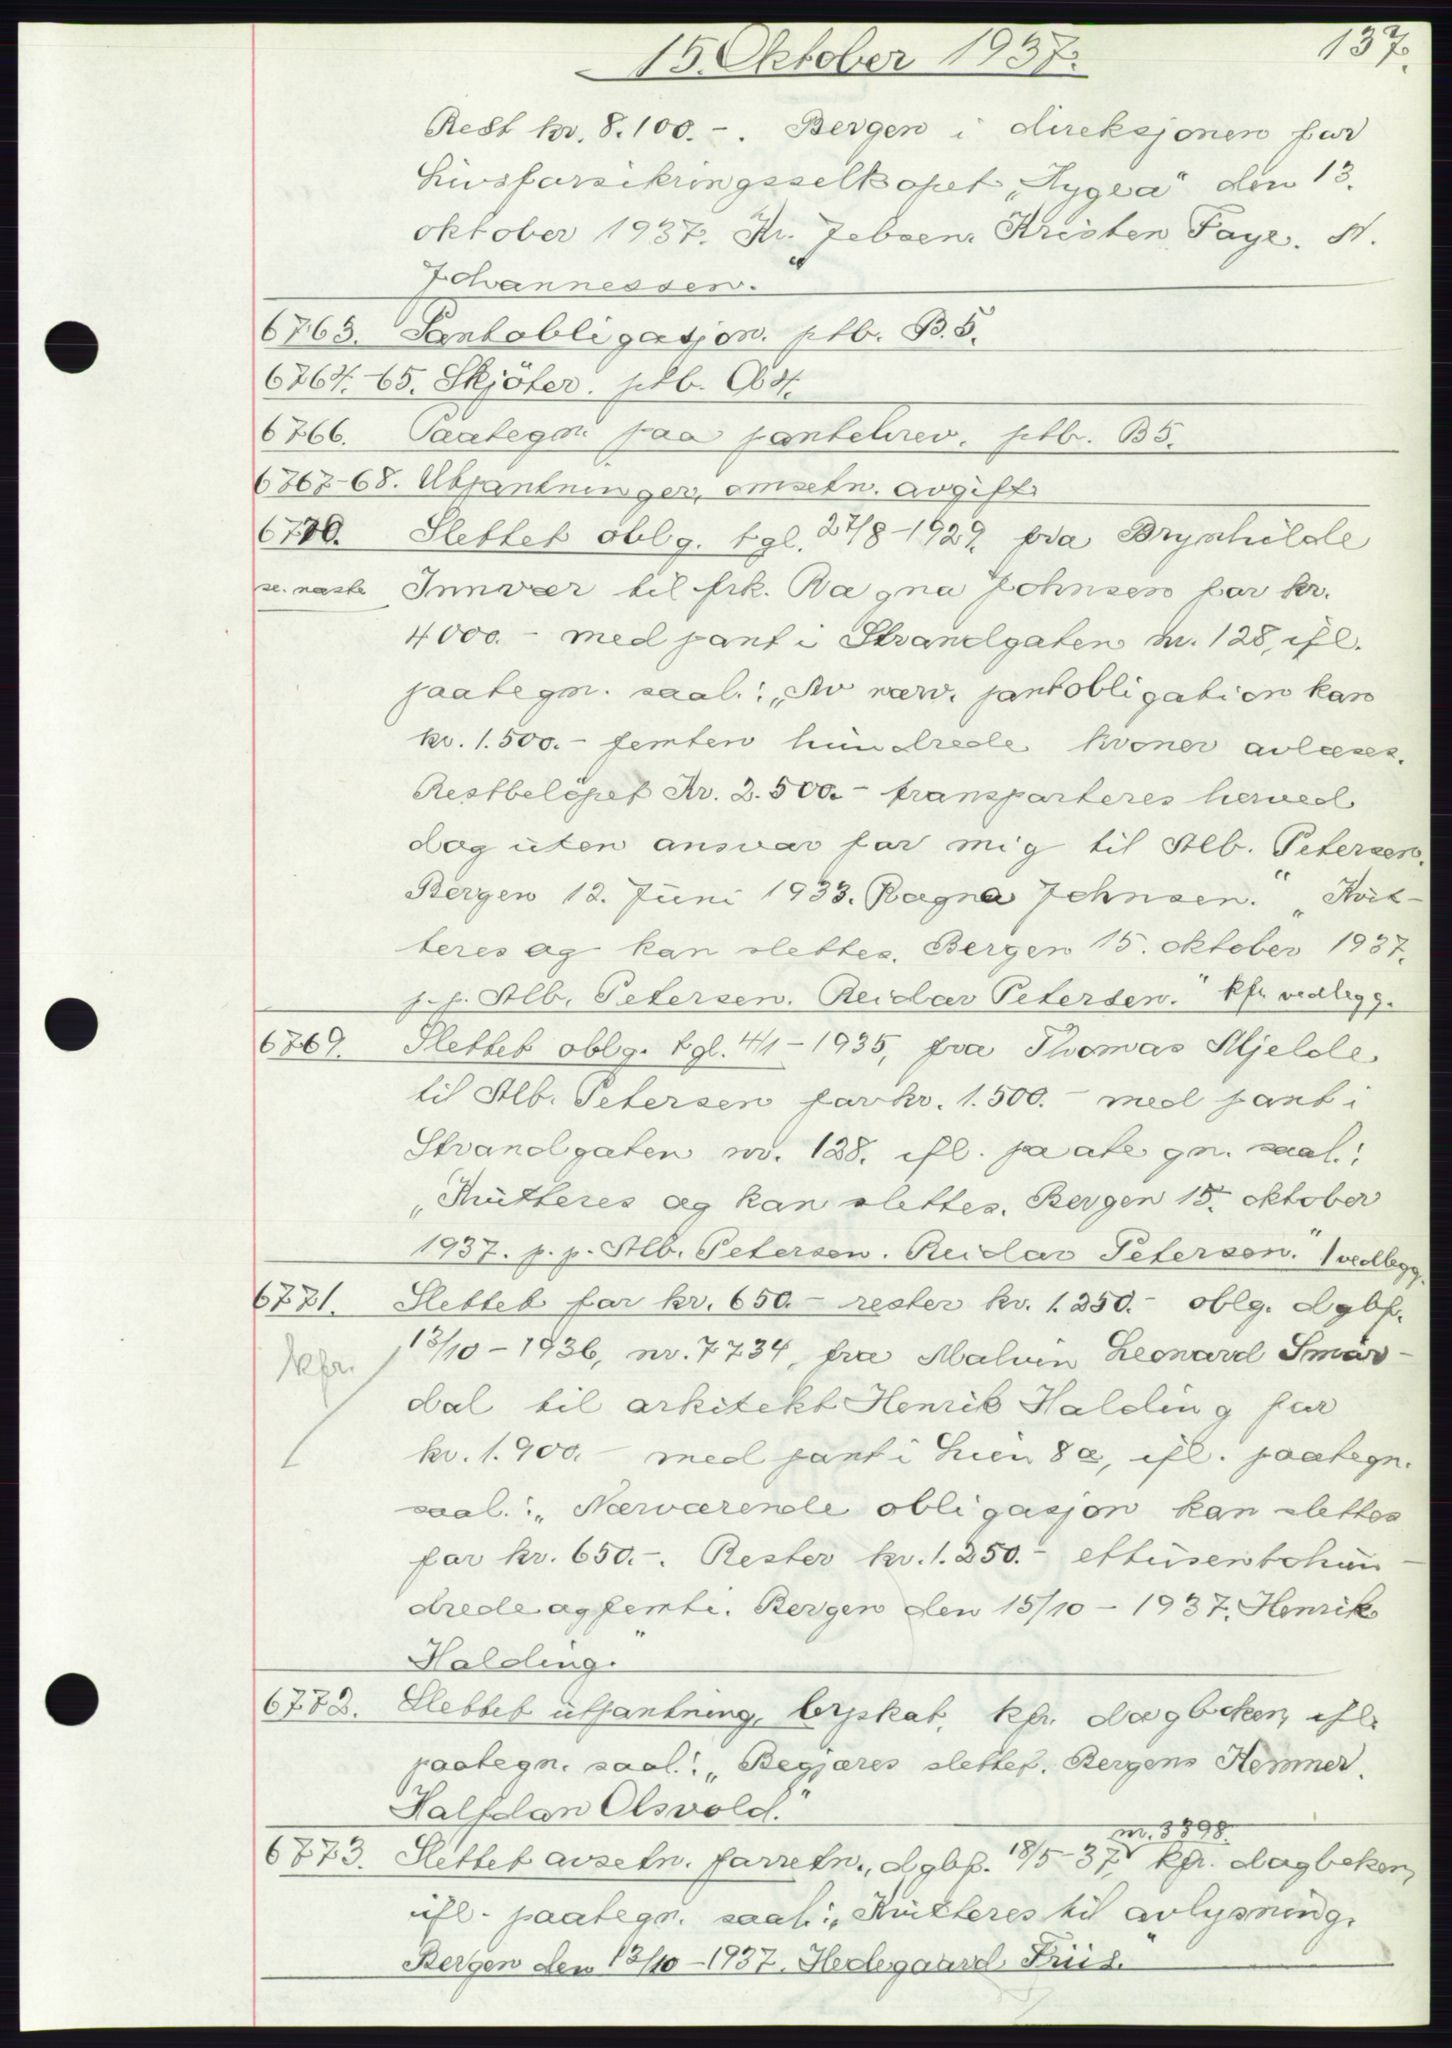 15. Oktober 1937.
137.
Rest kr. 8.100.-. Bergen i direksjonen for
Livsforsikringsselskapet „Hygea" den 13.
oktober 1937. Kr. Jebsen. Kristen Faye. A.
Johannessen."
6763. Pantobligasjon. ptb. B.5.
6764.-65. Skjöter. ptb. A 4.
6766. Paategn. paa pantebrev. ptb. B5.
6767-68. Utpantninger, omsetn. avgift.
6770. Slettet oblg. tgl. 27/8-1929, fra Brynhilde
se. næste Innvær til frk. Ragna Johnsen for kr.
4000.- med pant i Strandgaten nr. 128, ifl.
paategn. saal.: „Av nærv. pantobligation kan
kr. 1.500.- femten hundrede kroner avlæses.
Restbelöpet Kr. 2.500.- transporteres herved
dog uten ansvar for mig til Alb. Petersen.
Bergen 12. Juni 1933. Ragna Johnsen." „Kvit-
teres og kan slettes. Bergen 15. oktober 1937.
p.p. Alb. Petersen. Reidar Petersen." kfr vedlegg.
6769. Slettet oblg. tgl. 4/1-1935, fra Thomas Mjelde
til Alb. Petersen for kr. 1.500.- med pant i
Strandgaten nr. 128. ifl. paategn. saal.:
„Kvitteres og kan slettes. Bergen 15. oktober
1937. p.p. Alb. Petersen. Reidar Petersen." 1 vedlegg.
6771. Slettet for kr. 650.- rester kr. 1.250.- oblg. dgbf.
kfr. 13/10-1936, nr. 7734, fra Malvin Leonard Smör-
dal til arkitekt Henrik Halding for
kr. 1.900.- med pant i Lien 8a, ifl. paategn.
saal.: „Nærværende obligasjon kan slettes
for kr. 650.-. Rester kr. 1.250.- ettusentohun-
dredeogfemti. Bergen den 15/10-1937. Henrik
Halding."
6772. Slettet utpantning, byskat, kfr. dagboken, ifl.
paategn. saal.: „Begjæres slettet. Bergens Kemner.
Halfdan Olsvold."
nr. 3398.
6773. Slettet avsetn. forretn., dgbf. 18/5-37, kfr. dagboken,
ifl. paategn. saal.: „Kvitteres til avlysning.
Bergen den 13/10-1937. Hedegaard Friis."